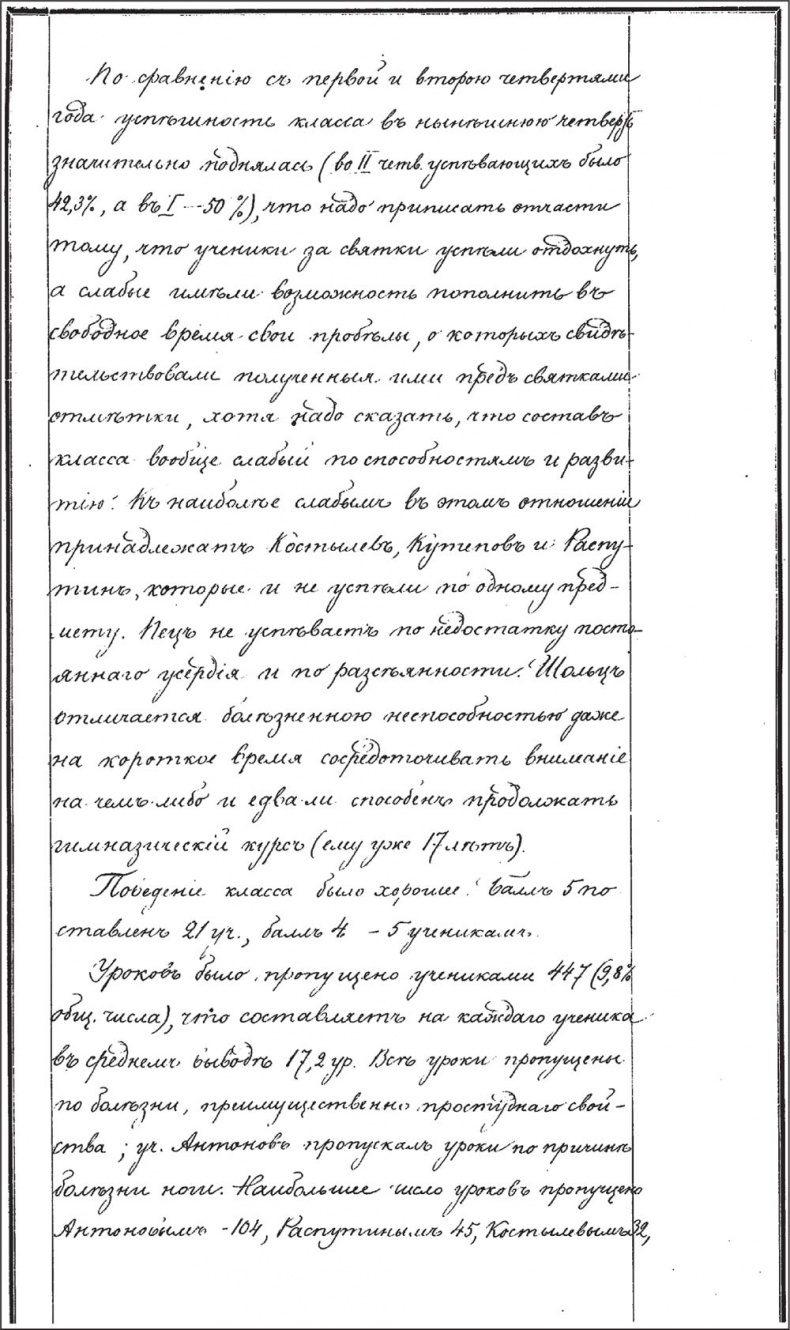 По сравненію съ первой и второю четвертями
года успѣшность класса въ нынѣшнюю четверть
значительно поднялась (во II четв. успѣвающихъ было
42,3%, а въ I — 50%), что надо приписать отчасти
тому, что ученики за святки успѣли отдохнуть,
а слабые имѣли возможность пополнить въ
свободное время свои пробѣлы, о которыхъ свидѣ-
тельствовали полученныя ими предъ святками
отмѣтки, хотя надо сказать, что составъ
класса вообще слабый по способностямъ и разви-
тію. Къ наиболѣе слабымъ въ этомъ отношеніи
принадлежатъ Костылевъ, Кутеповъ и Распу-
тинъ, которые и не успѣли по одному пред-
мету. Пецъ не успѣваетъ по недостатку посто-
яннаго усердія и по разсѣянности. Шольцъ
отличается болѣзненною неспособностью даже
на короткое время сосредоточивать вниманіе
на чемъ-либо и едва-ли способенъ продолжать
гимназическій курсъ (ему уже 17 лѣтъ).
Поведеніе класса было хорошее. Баллъ 5 по
ставленъ 21 уч., баллъ 4 – 5 ученикамъ.
Уроковъ было пропущено учениками 447 (9,8%
общ. числа), что составляетъ на каждаго ученика
въ среднемъ выводѣ 17,2 ур. Всѣ уроки пропущены
по болѣзни, преимущественно простуднаго свой-
ства; уч. Антоновъ пропускалъ уроки по причинѣ
болѣзни ноги. Наибольшее число уроковъ пропущено
Антоновымъ - 104, Распутинымъ 45, Костылевымъ 32,